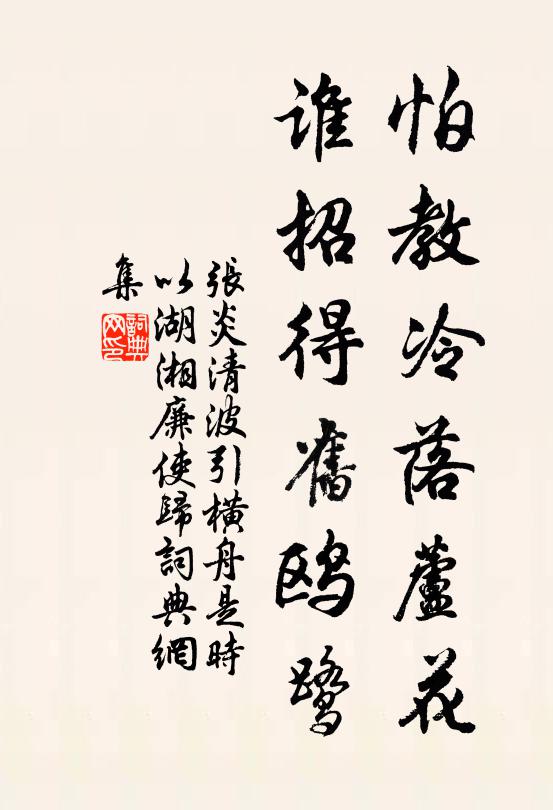 怕教冷落蘆花
誰招得舊鷗鷺
張炎清波引橫舟是時
以湖湘廉使歸詞典網
集
詞典網印